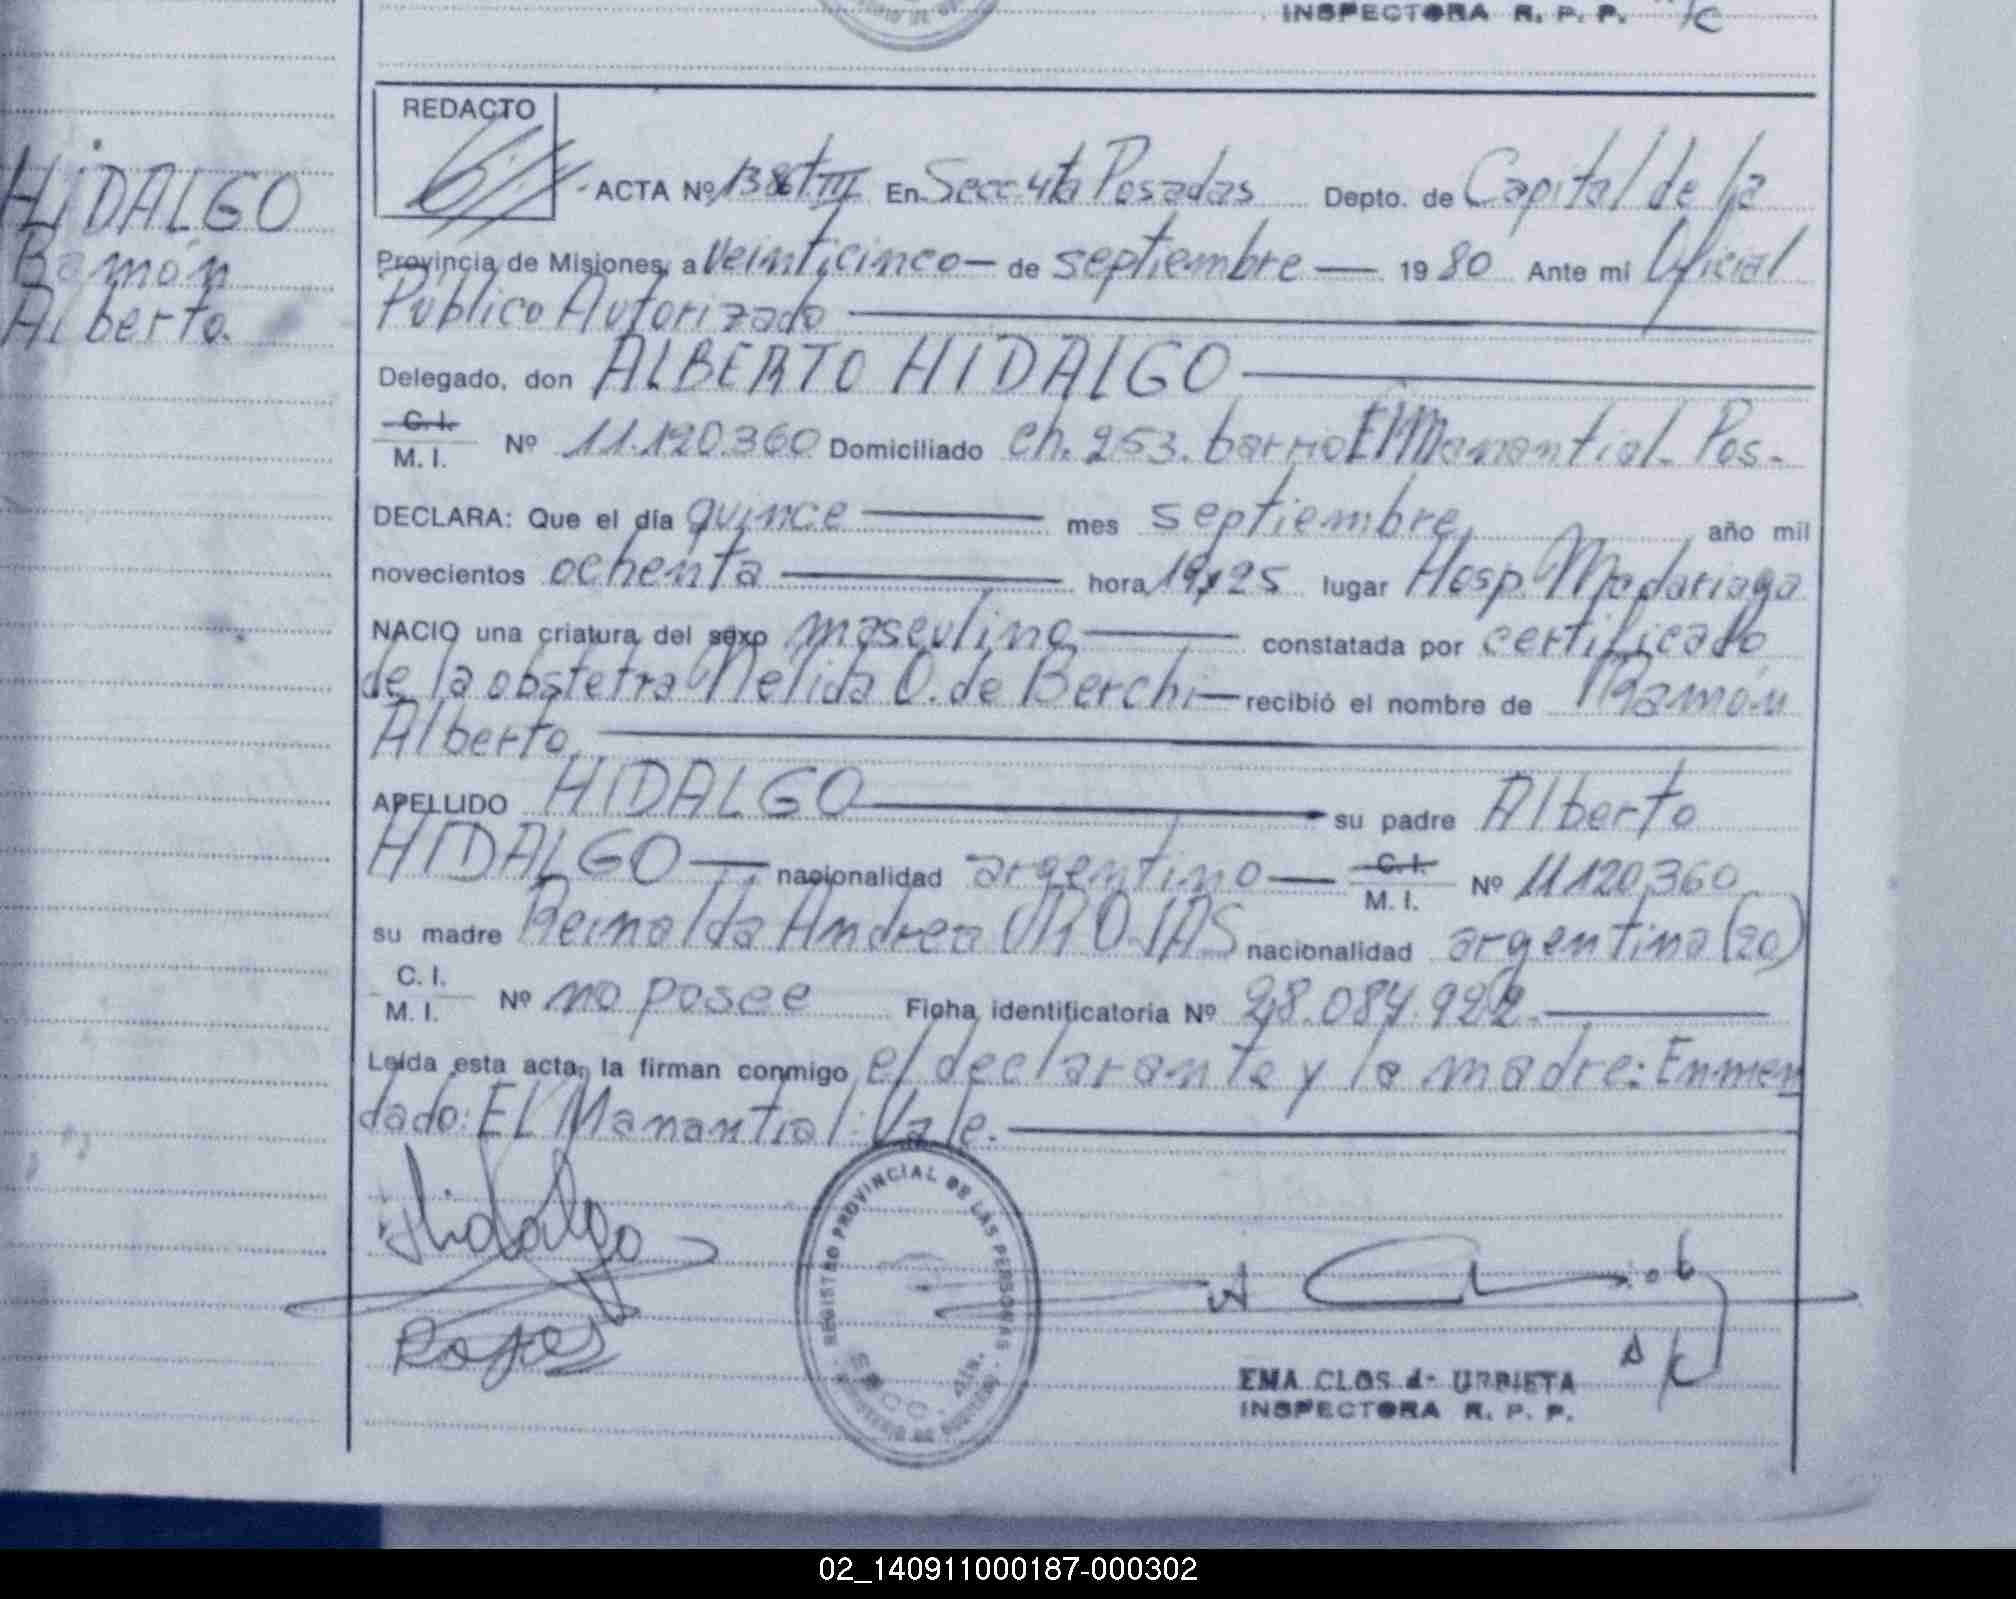 INSPECTORA R. P. P.
REDACTO
HIDALGO
Ramón
Alberto.
ACTA Nº 1386 t III En Secc. 4ta Posadas Depto. de Capital de la
Provincia de Misiones, a veinticinco — de septiembre — 1980 Ante mi Oficial
Público Autorizado
Delegado, don ALBERTO HIDALGO
C. I.
M. I. Nº 11.120.360 Domiciliado ch. 253. barrio El Manantial. Pos-
DECLARA: Que el día quince mes septiembre año mil
novecientos ochenta hora 19,25 lugar Hosp. Madariaga
NACIO una criatura del sexo masculino constatada por certificado
de la obstetra Nelida O. de Berchi — recibió el nombre de Ramón
Alberto.
APELLIDO HIDALGO su padre Alberto
HIDALGO — nacionalidad argentino —
C. I.
M. I. Nº 11.120.360
su madre Reinalda Andrea ROJAS nacionalidad argentina (20)
C. I.
M. I. Nº no posee Ficha identificatoria Nº 28.084.922.
Leída esta acta, la firman conmigo el declarante y la madre: Enmen
dado: EL Manantial: Vale.
Hidalgo
REGISTRO PROVINCIAL DE LAS PERSONAS
SECC. 4ta.
EMA CLOS de URRIETA
INSPECTORA R. P. P.
02_140911000187-000302